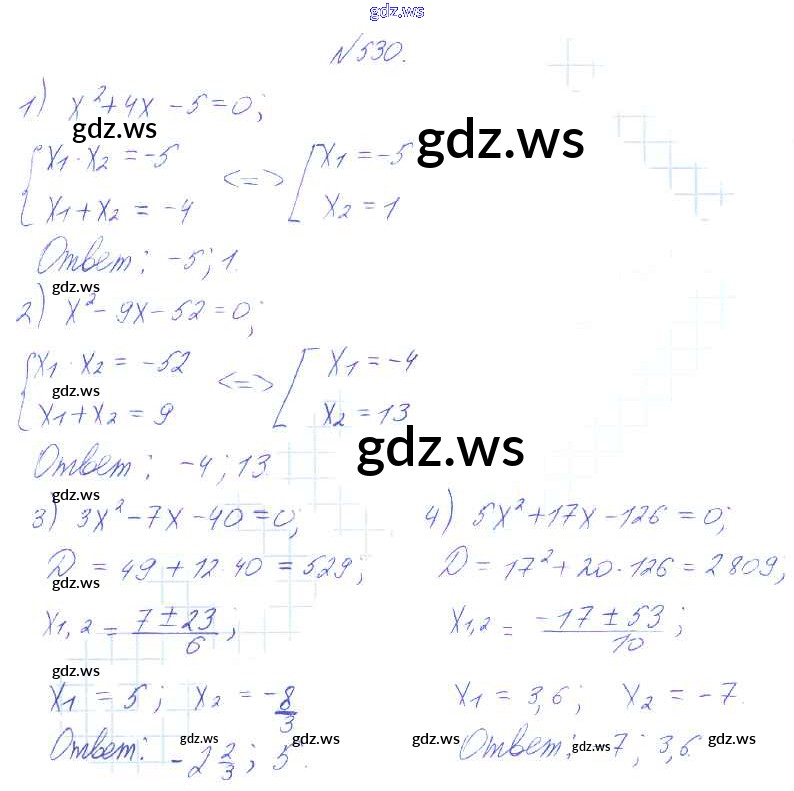 gdz.ws
N530.
1) x²+4x-5=0;
gdz.ws
gdz.ws
{x₁·x₂=-5
x₁+x₂=-4 <=> [x₁=-5
x₂=1
Ответ: -5; 1.
gdz.ws
2) x²-9x-52=0;
{x₁·x₂=-52
gdz.ws
x₁+x₂=9 <=> [x₁=-4
x₂=13
gdz.ws
Ответ: -4; 13
gdz.ws
3) 3x²-7x-40=0;
D=49+12·40=529;
gdz.ws
x₁,₂=(7±23)/6;
gdz.ws
x₁=5; x₂=-8/3
Ответ: -2 2/3; 5.
gdz.ws
gdz.ws
4) 5x²+17x-126=0;
D=17²+20·126=2809;
x₁,₂=(-17±53)/10;
x₁=3,6; x₂=-7.
Ответ: -7; 3,6
gdz.ws
gdz.ws
gdz.ws